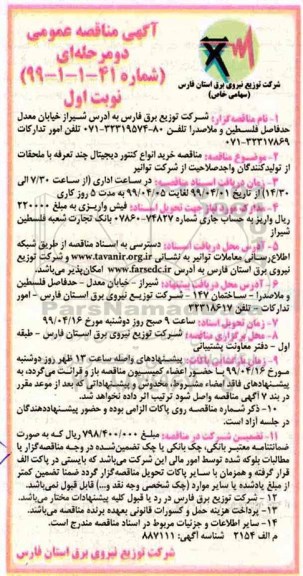 آگهی مناقصه عمومی
دو مرحله‌ای
(شماره ۴۱-۱-۱-۹۹)
نوبت اول
شرکت توزیع نیروی برق استان فارس
(سهامی خاص)
۱- نام مناقصه گزار: شرکت توزیع برق فارس به آدرس شیراز خیابان معدل
حدفاصل فلسطین و ملاصدرا تلفن ۸۰-۳۲۳۱۹۵۷۴-۰۷۱ تلفن امور تدارکات
۰۷۱-۳۲۳۱۷۸۶۹
۲- موضوع مناقصه: مناقصه خرید انواع کنتور دیجیتال چند تعرفه با ملحقات
از تولیدکنندگان واجدصلاحیت از شرکت توانیر
۳- زمان دریافت اسناد مناقصه: در ساعت اداری (از ساعت ۷/۳۰ الی
۱۴/۳۰) از تاریخ ۹۹/۰۴/۰۱ لغایت ۹۹/۰۴/۰۵ به مدت ۵ روز کاری
۴- مدارک مورد نیاز جهت تحویل اسناد: فیش واریزی به مبلغ ۲۲۰۰۰۰
ریال واریز به حساب جاری شماره ۰۷۸۶۰۷۴۸۲۷ بانک تجارت شعبه فلسطین
شیراز
۵- آدرس محل دریافت اسناد: دسترسی به اسناد مناقصه از طریق شبکه
اطلاع‌رسانی معاملات توانیر به نشانی www.tavanir.org.ir و شرکت توزیع
نیروی برق استان فارس به آدرس www.farsedc.ir امکان‌پذیر می‌باشد.
۶- آدرس محل دریافت پیشنهاد: شیراز - خیابان معدل - حدفاصل فلسطین
و ملاصدرا - ساختمان ۱۴۷ - شرکت توزیع نیروی برق استان فارس - امور
تدارکات - تلفن ۳۲۳۱۸۶۱۷
۷- زمان تحویل اسناد: ساعت ۹ صبح روز دوشنبه مورخ ۹۹/۰۴/۱۶
۸- محل برگزاری مناقصه: شرکت توزیع نیروی برق استان فارس - طبقه
اول - دفتر معاونت پشتیبانی
۹- زمان بازگشایی پاکات: پیشنهادهای واصله ساعت ۱۲ ظهر روز دوشنبه
مورخ ۹۹/۰۴/۱۶ با حضور اعضاء کمیسیون مناقصه باز و قرائت می‌گردد، به
پیشنهادهای فاقد امضاء مشروط، مخدوش و پیشنهاداتی که بعد از موعد مقرر
در بند ۷ آگهی مناقصه واصل شود ترتیب اثر داده نخواهد شد.
۱۰- ذکر شماره مناقصه روی پاکات الزامی بوده و حضور پیشنهاددهندگان
در جلسه آزاد است.
۱۱- تضمین شرکت در مناقصه: مبلغ ۷۹۸/۴۰۰/۰۰۰ ریال که به صورت
ضمانتنامه معتبر بانکی، چک بانکی یا چک تضمین‌شده در وجه مناقصه‌گزار یا
مطالبات بلوکه شده توسط امور مالی این شرکت می‌باشد که بایستی در پاکت الف
قرار گرفته و همزمان با سایر پاکات تحویل مناقصه‌گزار گردد ضمنا تضمین کمتر
از مبلغ یادشده یا سایر موارد (چک شخصی وجه نقد و...) قابل قبول نمی‌باشد.
۱۲- شرکت توزیع برق فارس در رد یا قبول کلیه پیشنهادات مختار می‌باشد.
۱۳- پرداخت هزینه حمل و کسورات قانونی بعهده برنده مناقصه می‌باشد.
۱۴- سایر اطلاعات و جزئیات مربوط در اسناد مناقصه مندرج است.
م الف ۲۱۵۴ شناسه آگهی: ۸۸۷۱۱۱
شرکت توزیع نیروی برق استان فارس